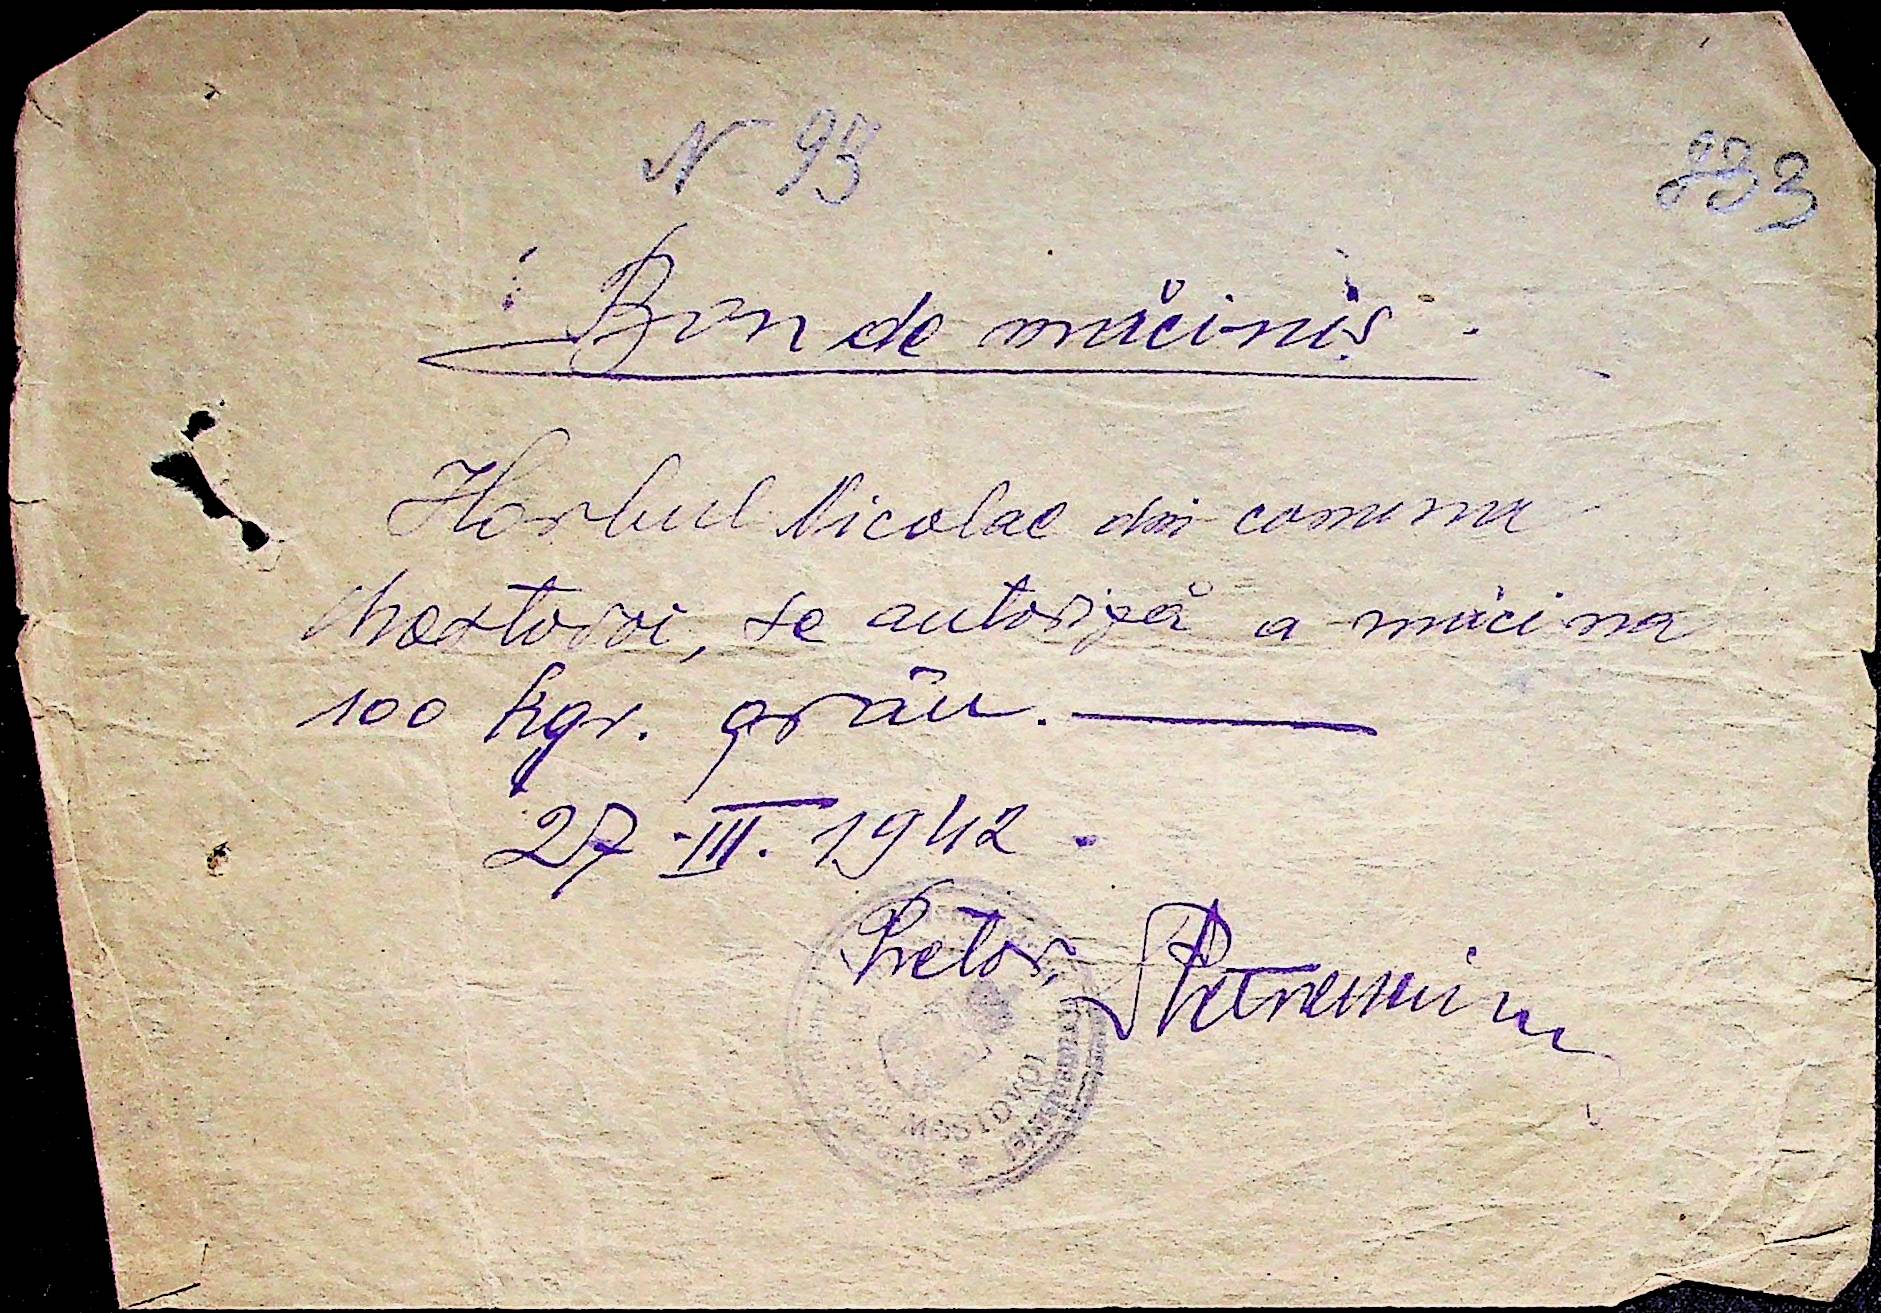 N 95
233
Bon de măciniș.
Horbul Nicolae din comuna
Mostovoi, se autoriză a măcina
100 kgr. grâu.
27.III.1942.
Pretor,
MOSTOVOI